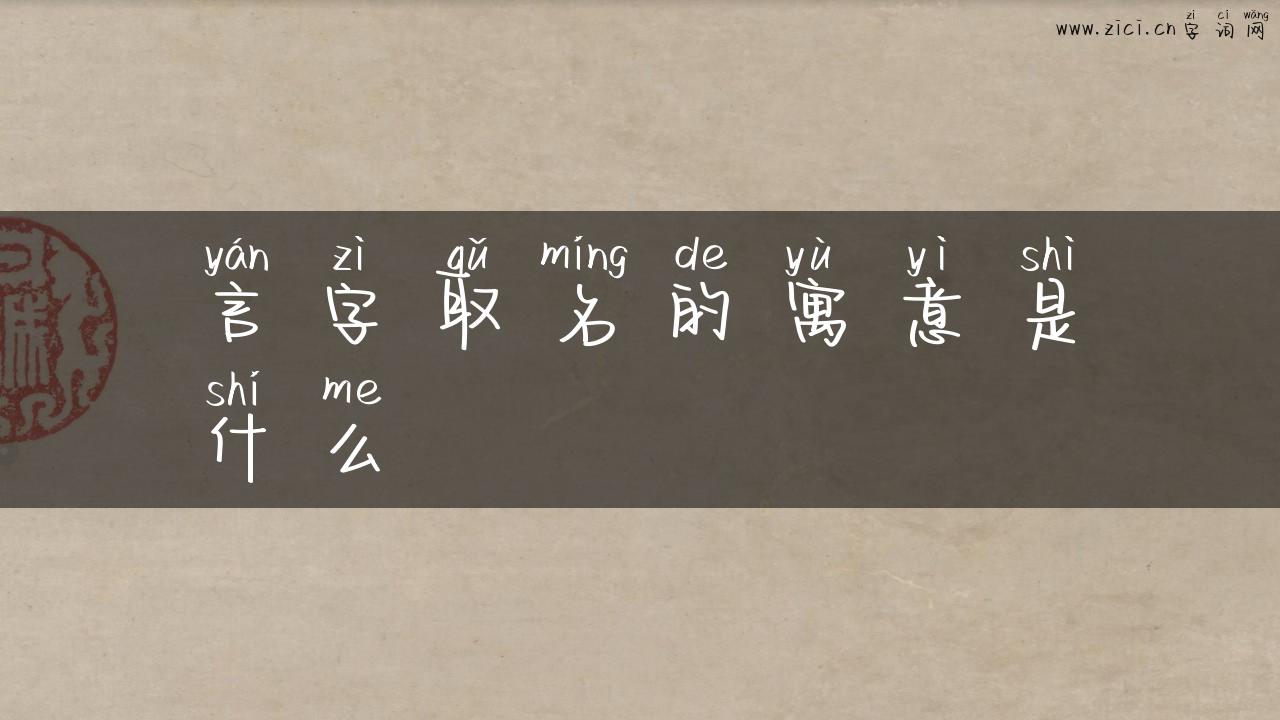 zì cí wǎng
www.zici.cn字词网
yán zì qǔ míng de yù yì shì
言字取名的寓意是
shí me
什么